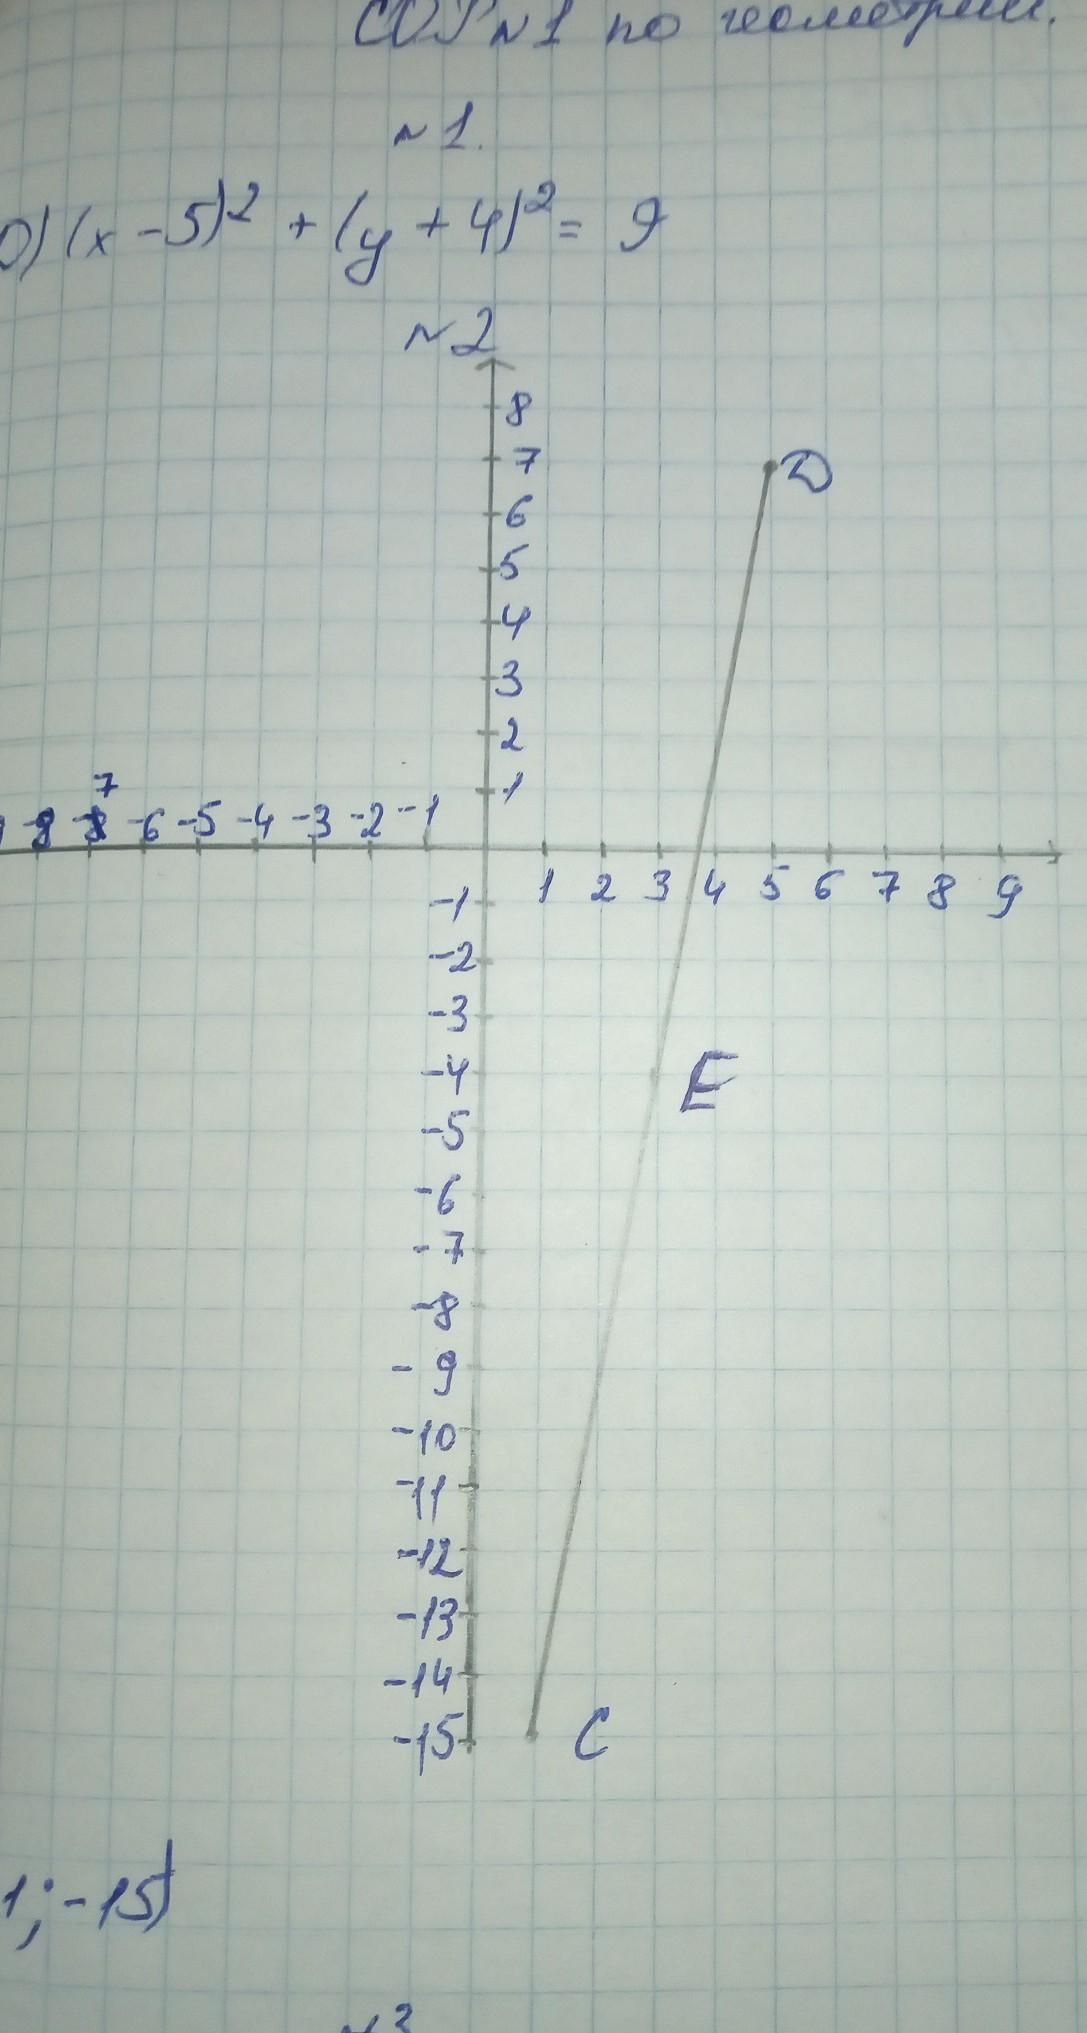 СОР №1 по геометрии.
№1.
D) (x - 5)² + (y + 4)² = 9
№2
8
7
D
6
5
4
3
2
1
7
-8 -6 -5 -4 -3 -2 -1
1 2 3 4 5 6 7 8 9
-1
-2
-3
-4
E
-5
-6
-7
-8
-9
-10
-11
-12
-13
-14
-15
C
1; -15)